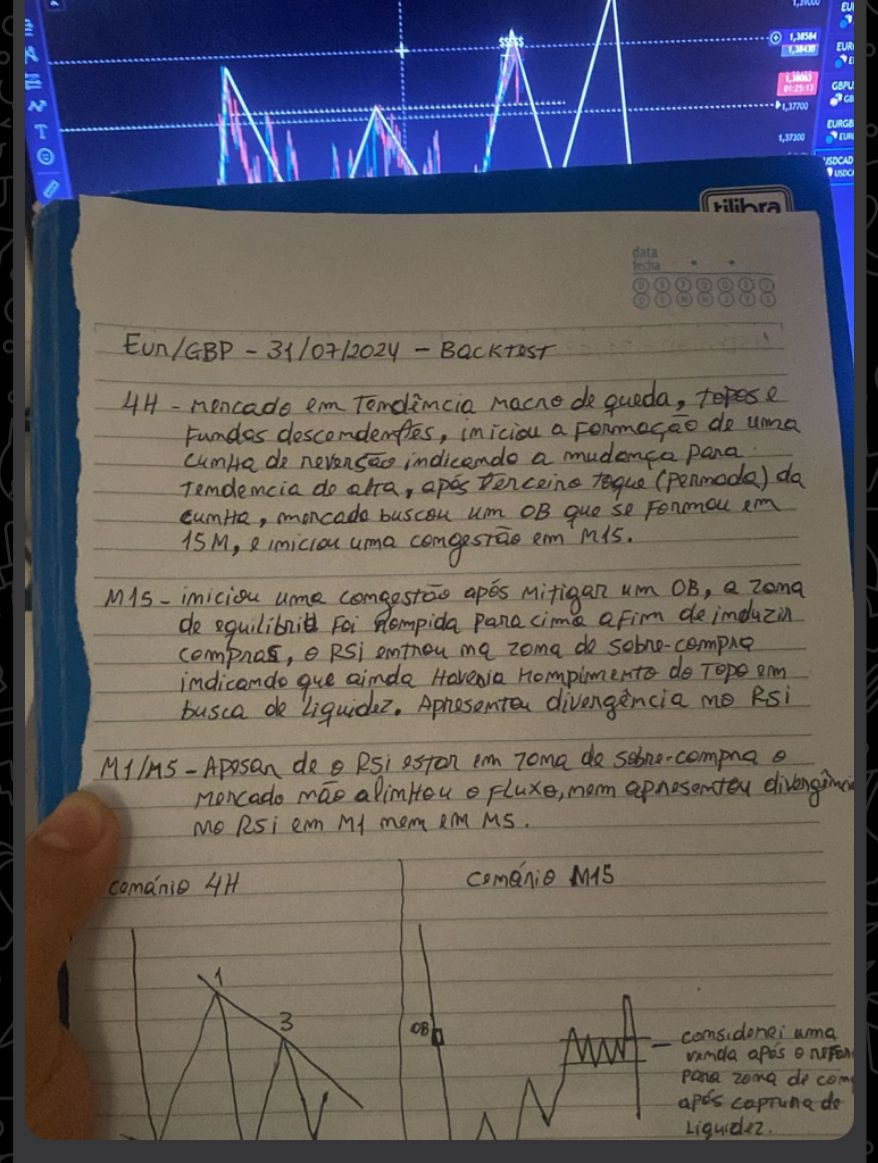 1,38584
1,38430
EUR
1,38063
01:25:13
GBPU
GB
1,37700
EURGB
EUR
1,37300
USDCAD
USDC
$$$$
T
tilibra
data
fecha
Eur/GBP - 31/07/2024 - Backtest
4H - mercado em Tendência macro de queda, topos e
Fundos descendentes, iniciou a Formação de uma
cunha de reversão indicando a mudança para
Tendencia de alta, após Terceiro toque (pernada) da
cunha, mercado buscou um OB que se Formou em
15M, e iniciou uma congestão em M15.
M15 - iniciou uma congestão após mitigar um OB, a zona
de equilibrio Foi rompida para cima a fim de induzir
compras, o RSi entrou na zona de sobre-compra
indicando que ainda Haveria rompimento do Topo em
busca de Liquidez. Apresentou divergência no RSi
M1/M5 - Apesar de o RSi estar em zona de sobre-compra o
Mercado não alinhou o Fluxo, nem apresentou divergência
no RSi em M1 nem em M5.
cenário 4H
cenário M15
1
3
OB
considerei uma
venda após o
para zona de com
após captura de
Liquidez.